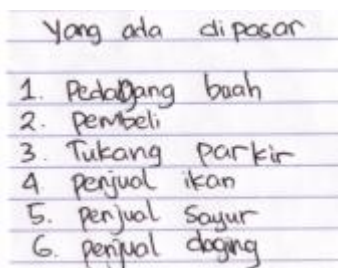 Yang ada dipasar
1. Pedagang buah
2. Pembeli
3. Tukang parkir
4 penjual ikan
5. penjual sayur
6. penjual daging